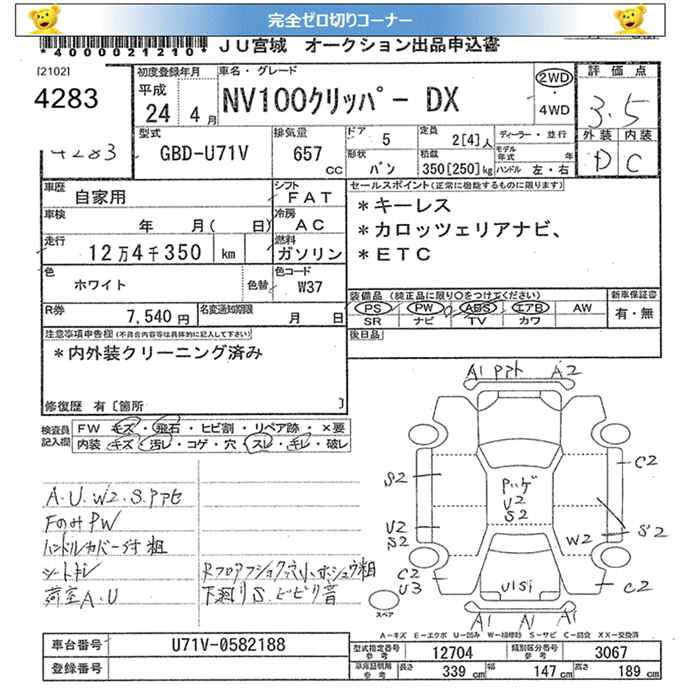 完全ゼロ切りコーナー
*4000021210* JU宮城 オークション出品申込書
[2102]
4283
4283
初度登録年月
平成
24年 4月
車名・グレード
NV100クリッパー DX
2WD
・
4WD
評価点
3.5
外装 内装
D C
型式
GBD-U71V
排気量
657 cc
ドア 5
形状 バン
定員 2[4]人
積載 350[250]kg
ディーラー・並行
モデル年式 年
ハンドル 左・右
車歴
自家用
シフト
FAT
車検
年 月( 日)
冷房
AC
走行
12万4千350 km
燃料
ガソリン
色
ホワイト
色替
色コード
W37
R券
7,540円
名変通知期限
月 日
セールスポイント(正常に機能するものに限ります)
*キーレス
*カロッツェリアナビ、
*ETC
装備品 (純正品に限り○をつけてください)
PS PW ABS エアB AW
SR ナビ TV カワ
新車保証書
有・無
後日品
注意事項申告欄(不具合内容等は具体的に記入して下さい)
*内外装クリーニング済み
修復歴 有[箇所 ]
検査員記入欄
FW キズ・飛石・ヒビ割・リペア跡・×要
内装 キズ・汚レ・コゲ・穴・スレ・キレ・破レ
A.U.W2.S.アセ
FのみPW
ハンドルカバー付 粗
シートキレ
荷室A.U
Rフロア フショク穴小、ホシュウ粗
下廻りS.ビビリ音
A1 アト A2
S2
U2
S2
C2
U3
ハゲ
U2
S2
C2
S2
W2
C2
U1S1
A1 N A1
スペア
A-キズ E-エクボ U-凹み W-補修跡 S-サビ C-腐食 XX-交換済
車台番号
U71V-0582188
登録番号
型式指定番号 参考
12704
類別区分番号 参考
3067
車庫証明用 参考
長さ 339 cm
幅 147 cm
高さ 189 cm